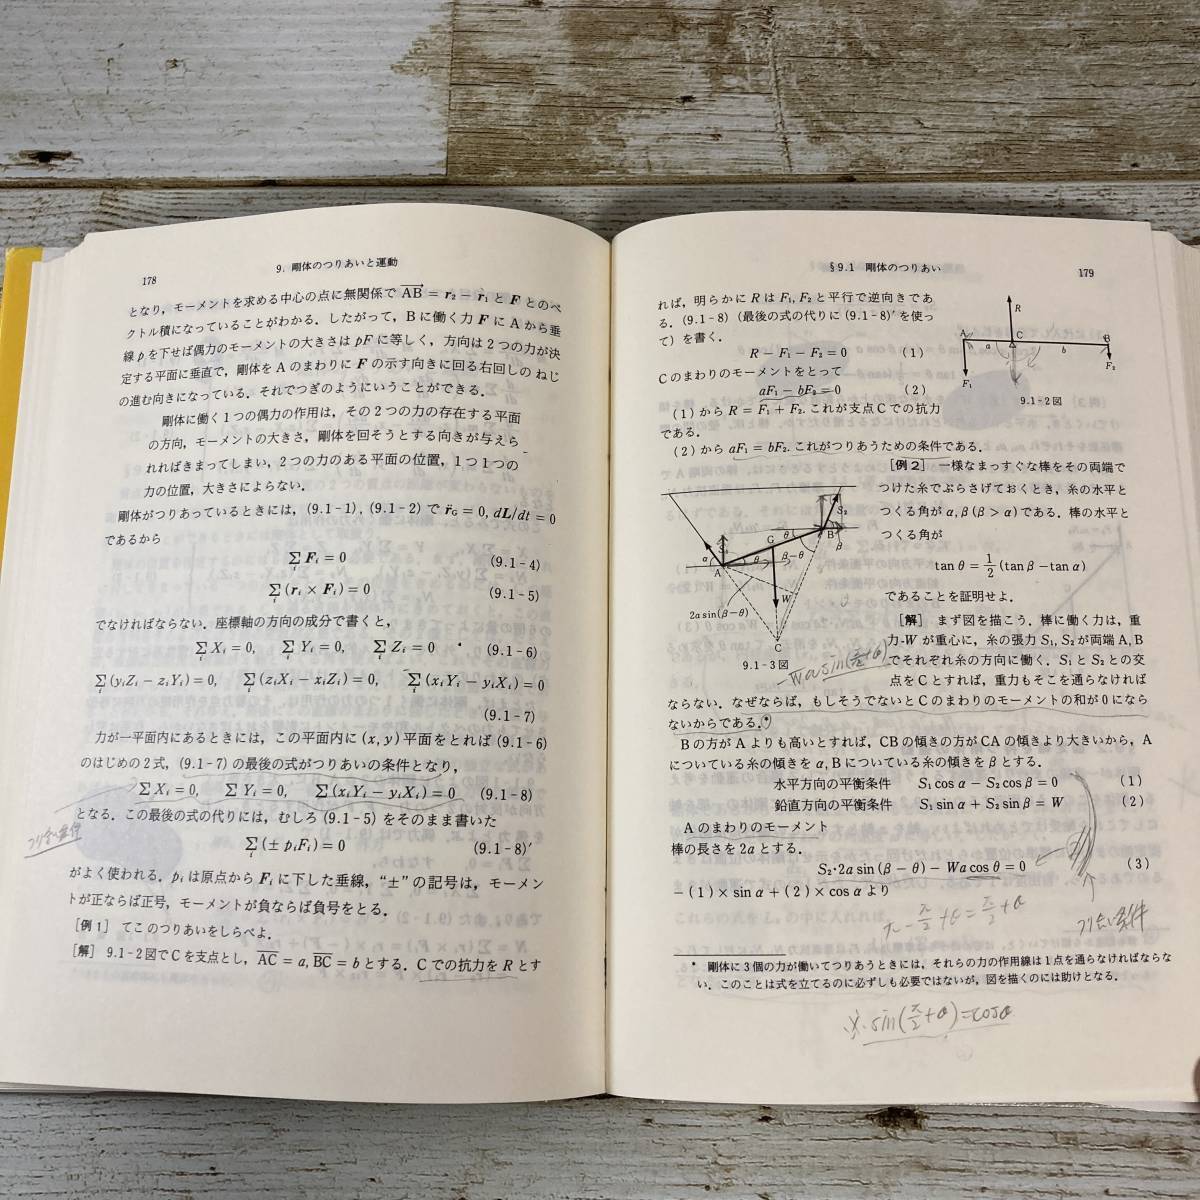 178
9. 剛体のつりあいと運動
となり，モーメントを求める中心の点に無関係で AB = r₂ − r₁ と F とのベ
クトル積になっていることがわかる．したがって，B に働く力 F に A から垂
線 p を下せば偶力のモーメントの大きさは pF に等しく，方向は2つの力が決
定する平面に垂直で，剛体を A のまわりに F の示す向きに回る右回しのねじ
の進む向きになっている．それでつぎのようにいうことができる．
剛体に働く1つの偶力の作用は，その2つの力の存在する平面
の方向，モーメントの大きさ，剛体を回そうとする向きが与えら
れればきまってしまい，2つの力のある平面の位置，1つ1つの
力の位置，大きさによらない．
剛体がつりあっているときには，(9.1-1)，(9.1-2) で r̈G = 0, dL/dt = 0
であるから
∑ᵢ Fᵢ = 0 (9.1-4)
∑ᵢ (rᵢ × Fᵢ) = 0 (9.1-5)
でなければならない．座標軸の方向の成分で書くと，
∑ᵢ Xᵢ = 0, ∑ᵢ Yᵢ = 0, ∑ᵢ Zᵢ = 0 (9.1-6)
∑ᵢ (yᵢZᵢ − zᵢYᵢ) = 0, ∑ᵢ (zᵢXᵢ − xᵢZᵢ) = 0, ∑ᵢ (xᵢYᵢ − yᵢXᵢ) = 0
(9.1-7)
力が一平面内にあるときには，この平面内に (x, y) 平面をとれば (9.1-6)
のはじめの2式，(9.1-7) の最後の式がつりあいの条件となり，
∑Xᵢ = 0, ∑Yᵢ = 0, ∑(xᵢYᵢ − yᵢXᵢ) = 0 (9.1-8)
となる．この最後の式の代りには，むしろ (9.1-5) をそのまま書いた
∑ᵢ (± pᵢFᵢ) = 0 (9.1-8)′
がよく使われる．pᵢ は原点から Fᵢ に下した垂線，“±” の記号は，モーメン
トが正ならば正号，モーメントが負ならば負号をとる．
[例1] てこのつりあいをしらべよ．
[解] 9.1-2図で C を支点とし，AC = a, BC = b とする．C での抗力を R とす
§9.1 剛体のつりあい
179
れば，明らかに R は F₁, F₂ と平行で逆向きであ
る．(9.1-8)（最後の式の代りに (9.1-8)′ を使っ
て）を書く．
R − F₁ − F₂ = 0 (1)
C のまわりのモーメントをとって
aF₁ − bF₂ = 0 (2)
(1) から R = F₁ + F₂. これが支点 C での抗力
である．
(2) から aF₁ = bF₂. これがつりあうための条件である．
R
A
a
C
b
B
F₁
F₂
9.1-2図
[例2] 一様なまっすぐな棒をその両端で
つけた糸でぶらさげておくとき，糸の水平と
つくる角が α, β (β > α) である．棒の水平と
つくる角が
tan θ = 1/2 (tan β − tan α)
であることを証明せよ．
S₁
S₂
α
A
G
θ
θ
B
β
β−θ
W
2a sin(β − θ)
C
9.1-3図
−Wa sin(π/2+θ)
[解] まず図を描こう．棒に働く力は，重
力 W が重心に，糸の張力 S₁, S₂ が両端 A, B
でそれぞれ糸の方向に働く．S₁ と S₂ との交
点を C とすれば，重力もそこを通らなければ
ならない．なぜならば，もしそうでないと C のまわりのモーメントの和が 0 になら
ないからである．*
B の方が A よりも高いとすれば，CB の傾きの方が CA の傾きより大きいから，A
についている糸の傾きを α, B についている糸の傾きを β とする．
水平方向の平衡条件 S₁ cos α − S₂ cos β = 0 (1)
鉛直方向の平衡条件 S₁ sin α + S₂ sin β = W (2)
A のまわりのモーメント
棒の長さを 2a とする．
S₂·2a sin (β − θ) − Wa cos θ = 0 (3)
−(1) × sin α + (2) × cos α より
π − π/2 + θ = π/2 + θ
つり合い条件
* 剛体に3個の力が働いてつりあうときには，それらの力の作用線は1点を通らなければならな
い．このことは式を立てるのに必ずしも必要ではないが，図を描くのには助けとなる．
※ sin(π/2 + θ) = cosθ